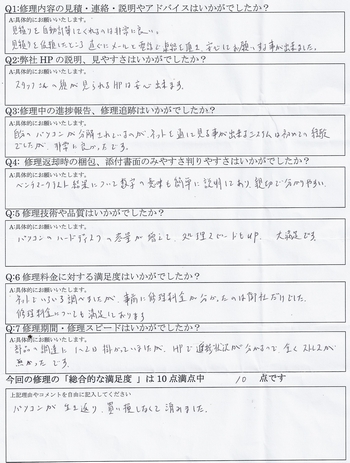 Q1:修理内容の見積・連絡・説明やアドバイスはいかがでしたか？
A:具体的にお願いいたします。
見積りを自動計算してくれるのは非常に良い。
見積りを依頼したところ 直ぐにメールと電話で連絡を頂き、安心してお願いする事が出来ました。
Q2:弊社 HP の説明、見やすさはいかがでしたか？
A:具体的にお願いいたします。
スタッフさんの顔が見られるHPは安心出来ます。
Q3:修理中の進捗報告、修理追跡はいかがでしたか？
A:具体的にお願いいたします。
自分のパソコンが分解されているのが、ネットを通じて見る事が出来るシステムは初めての経験
でしたが、非常に良かったです。
Q4: 修理返却時の梱包、添付書面のみやすさ判りやすさはいかがでしたか？
A:具体的にお願いいたします。
ベンチマークテスト結果について数字の意味も簡単に説明してあり、親切で分かりやすい。
Q:5 修理技術や品質はいかがでしたか？
A:具体的にお願いいたします。
パソコンのハードディスクの容量が増えて、処理スピードもUP、大満足です。
Q:6 修理料金に対する満足度はいかがでしたか？
A:具体的にお願いいたします。
ネットでいろいろ調べましたが、事前に修理料金が分かったのは御社だけでした。
修理料金についても満足しております
Q:7 修理期間・修理スピードはいかがでしたか？
A:具体的にお願いいたします。
部品の調達に 掛かっていましたが、HPで進捗状況が分かるので、全くストレスが
無かったです。
今回の修理の「総合的な満足度 」は 10 点満点中 10 点です
上記理由やコメントを自由に記入してください
パソコンが生き返り、買い換えしなくて済みました。